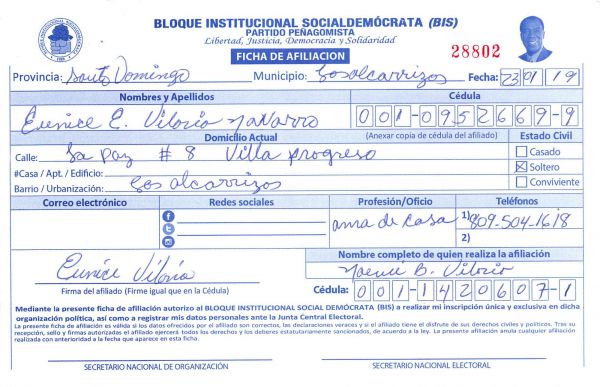 BLOQUE INSTITUCIONAL SOCIALDEMÓCRATA (BIS)
PARTIDO PEÑAGOMISTA
Libertad, Justicia, Democracia y Solidaridad
FICHA DE AFILIACION
28802
Provincia: Santo Domingo Municipio: Los alcarrizos Fecha: 23 01 19
Nombres y Apellidos Cédula
Eunice E. Vilorio Navarro 001-0952669-9
Domicilio Actual (Anexar copia de cédula del afiliado) Estado Civil
Calle: La Paz # 8 Villa progreso Casado
#Casa / Apt. / Edificio: X Soltero
Barrio / Urbanización: Los alcarrizos Conviviente
Correo electrónico Redes sociales Profesión/Oficio Teléfonos
ama de casa 1) 809-504-1618
2)
Nombre completo de quien realiza la afiliación
Eunice Vilorio B. Vilorio
Firma del afiliado (Firme igual que en la Cédula) Cédula: 001-1420607-1
Mediante la presente ficha de afiliación autorizo al BLOQUE INSTITUCIONAL SOCIAL DEMÓCRATA (BIS) a realizar mi inscripción única y exclusiva en dicha
organización política, así como a registrar mis datos personales ante la Junta Central Electoral.
La presente ficha de afiliación es válida si los datos ofrecidos por el afiliado son correctos, las declaraciones veraces y si el afiliado tiene el disfrute de sus derechos civiles y políticos. Tras su
recepción, sello y firmas autorizados el afiliado ejercerá todos los derechos y los deberes estatutariamente sancionados, de acuerdo a la ley. La presente afiliación anula cualquier afiliación
realizada con anterioridad a la fecha que aparece en esta ficha.
SECRETARIO NACIONAL DE ORGANIZACIÓN SECRETARIO NACIONAL ELECTORAL